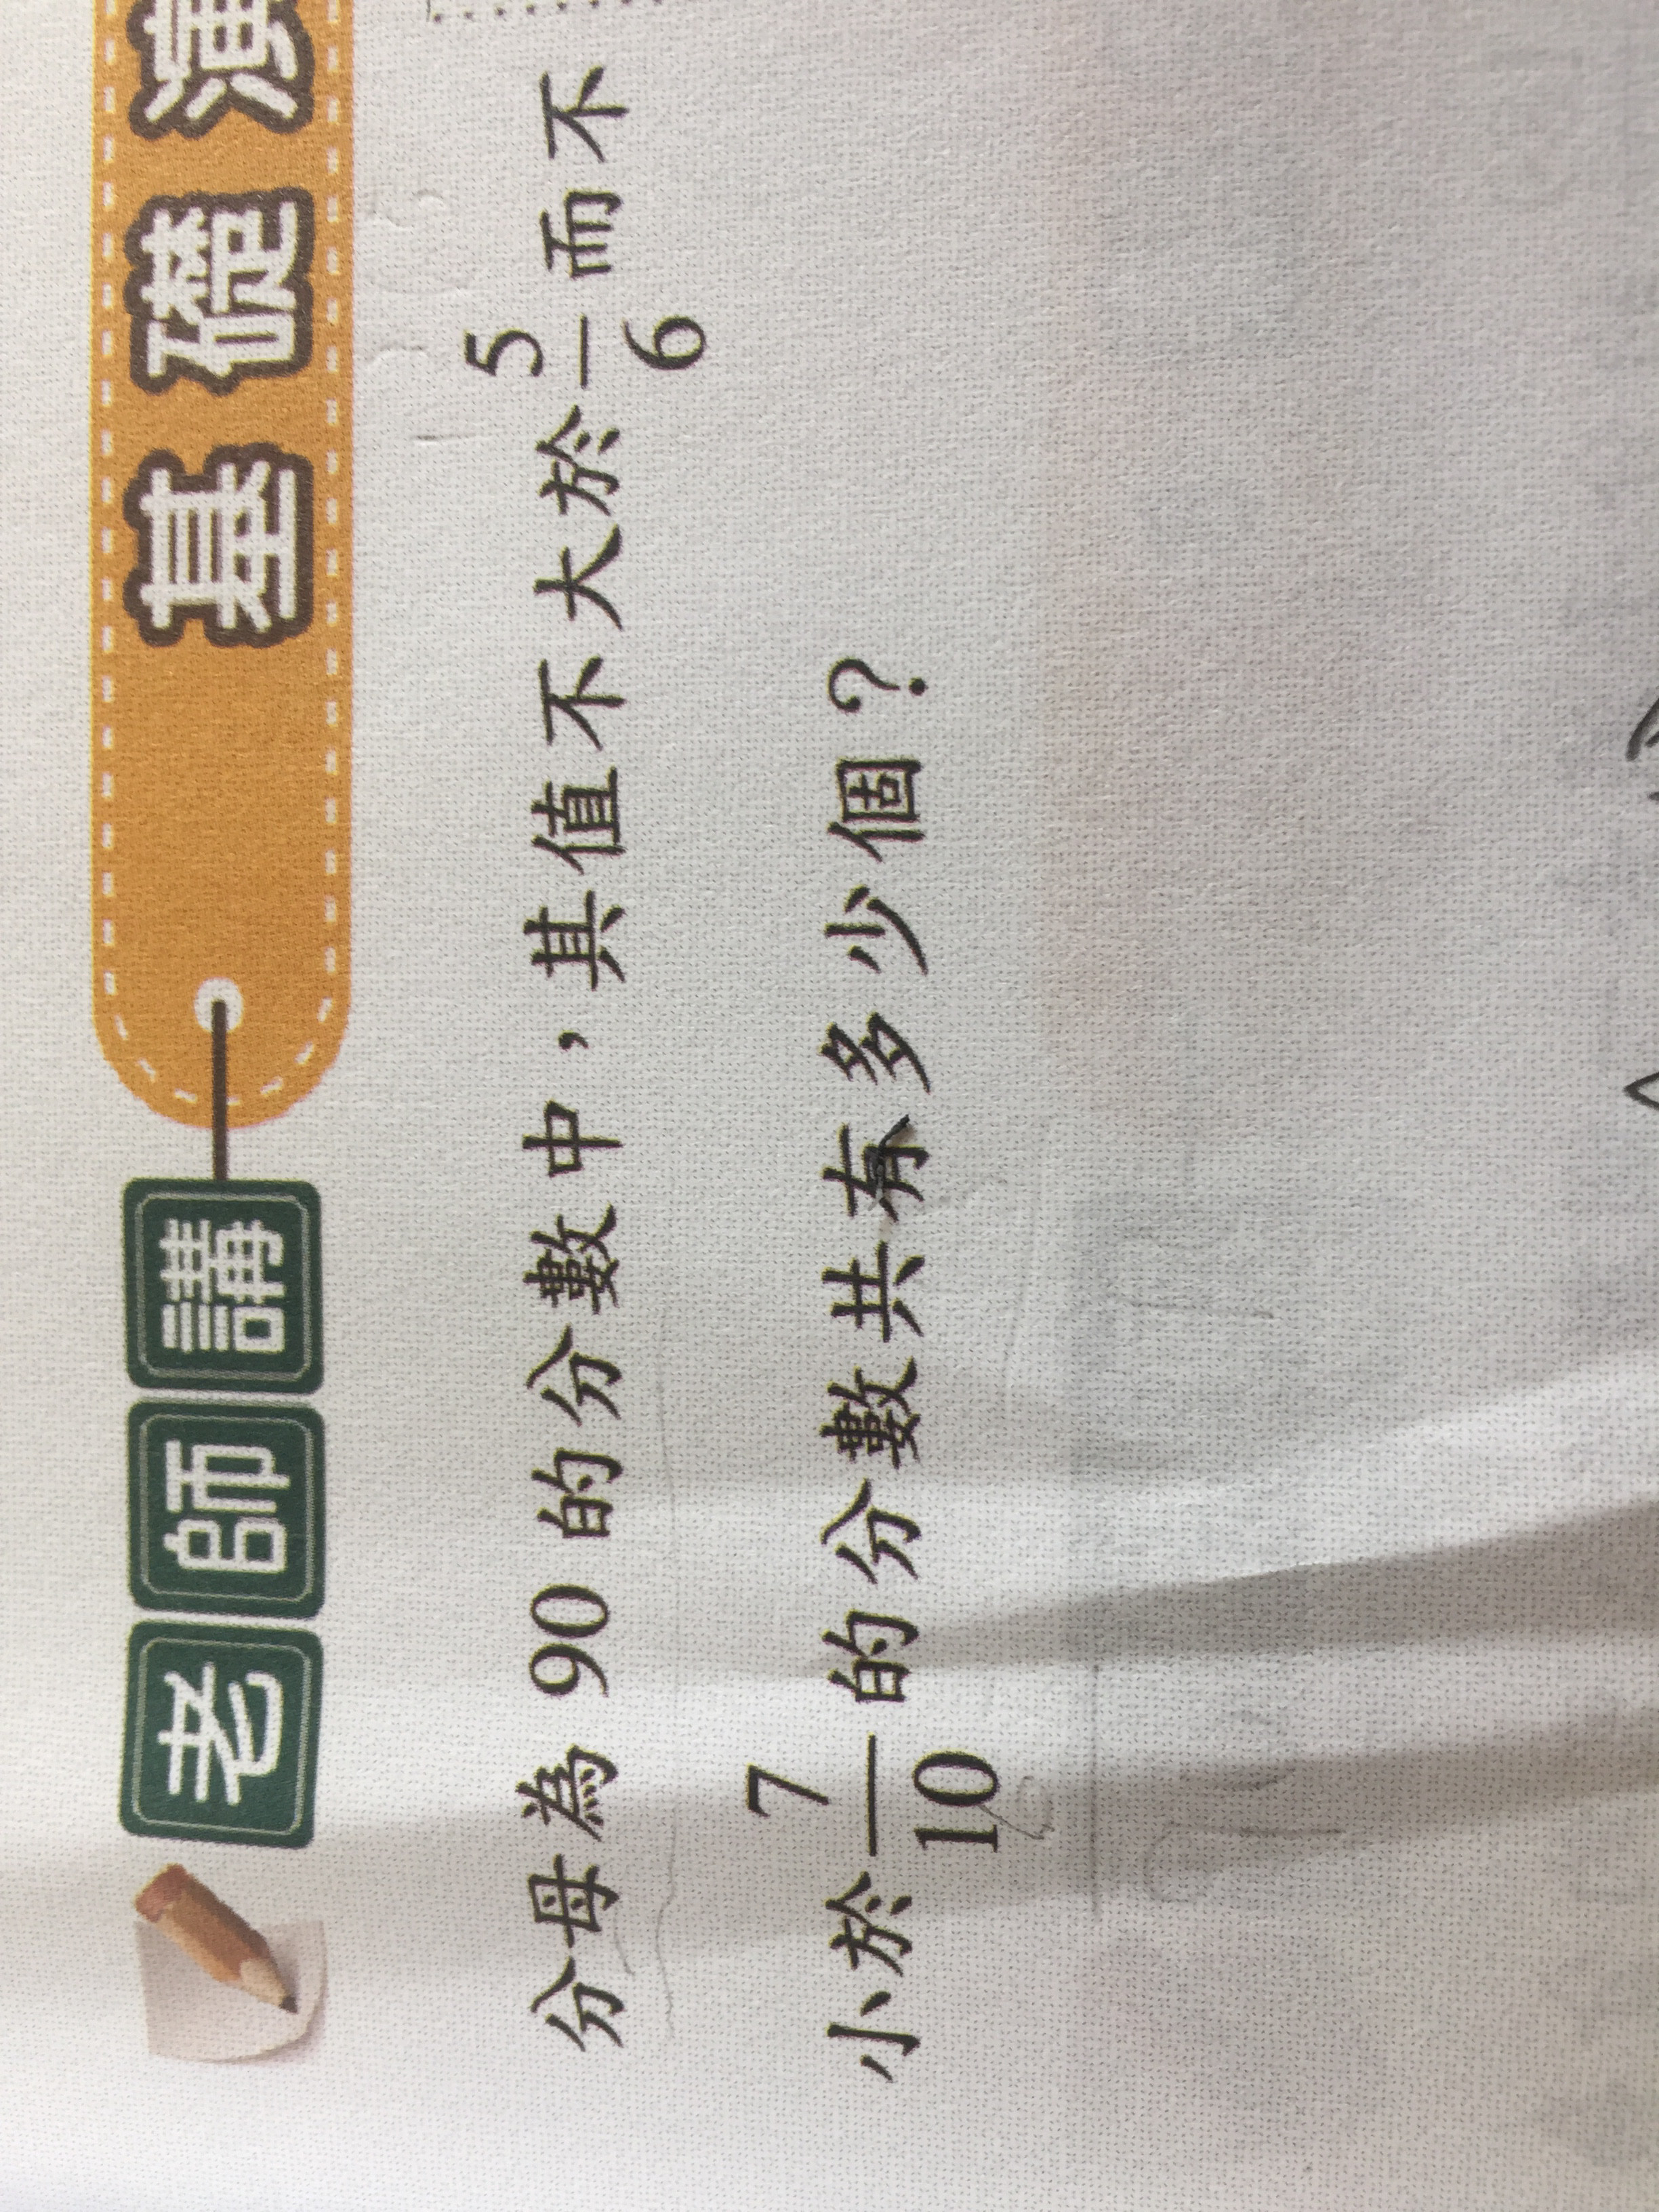 老師講
基礎演
分母為 90 的分數中，其值不大於 5/6 而不
小於 7/10 的分數共有多少個？